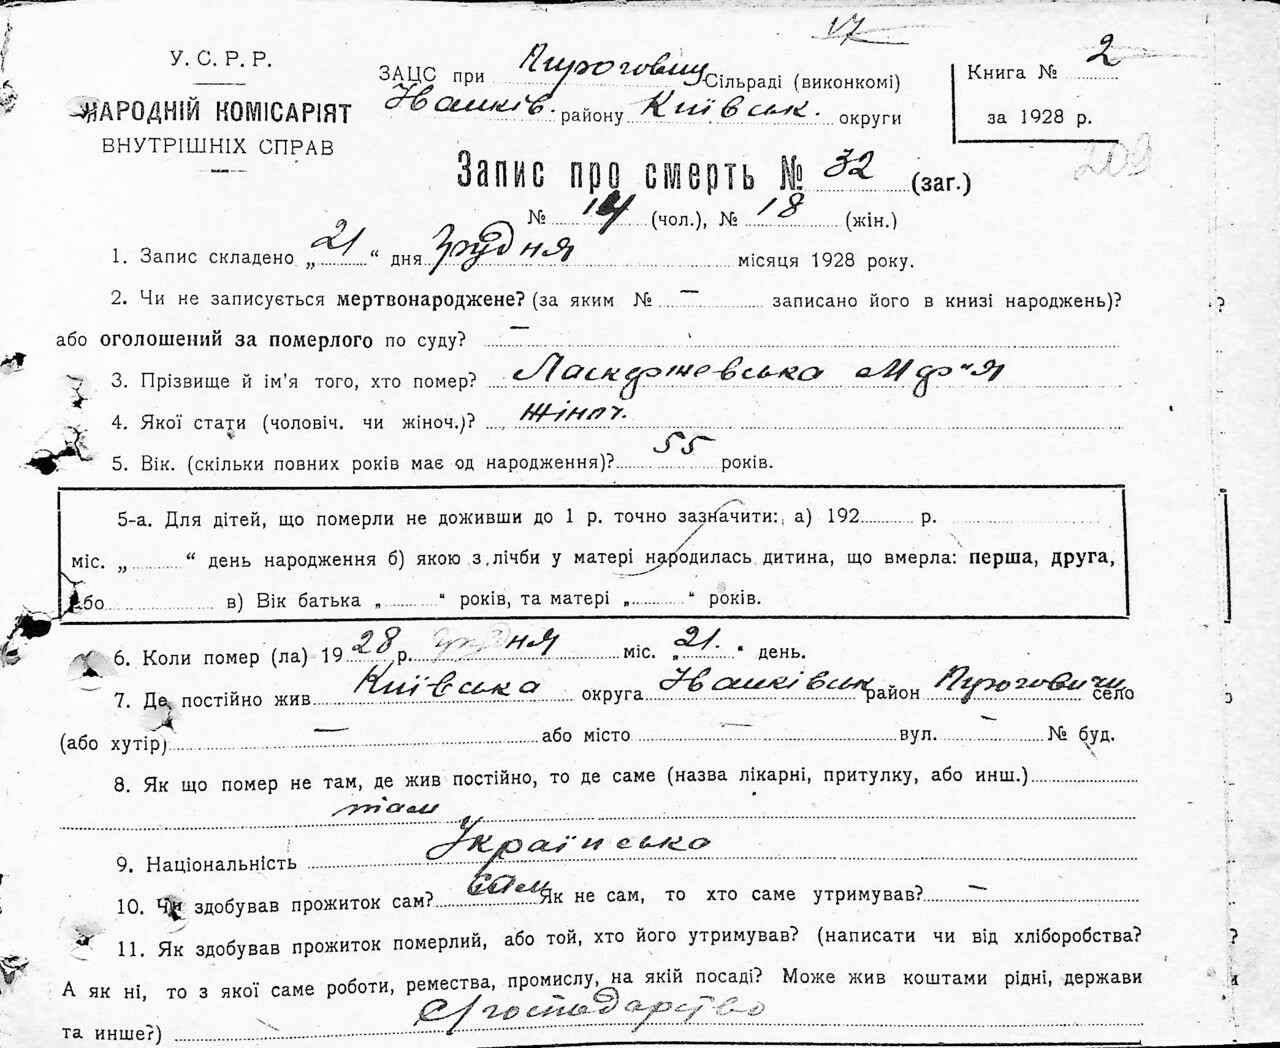 17
У. С. Р. Р.
НАРОДНІЙ КОМІСАРІЯТ
ВНУТРІШНІХ СПРАВ
ЗАЦС при Пироговиц Сільраді (виконкомі)
Іванків. району Київськ. округи
Книга № 2
за 1928 р.
209
Запис про смерть № 32 (заг.)
№ 14 (чол.), № 18 (жін.)
1. Запис складено „21“ дня грудня місяця 1928 року.
2. Чи не записується мертвонароджене? (за яким № – записано його в книзі народжень)?
або оголошений за померлого по суду? –
3. Прізвище й ім'я того, хто помер?
4. Якої стати (чоловіч. чи жіноч.)? жіноч.
5. Вік. (скільки повних років має од народження)? 55 років.
5-а. Для дітей, що померли не доживши до 1 р. точно зазначити: а) 192 р.
міс. „ “ день народження б) якою з лічби у матері народилась дитина, що вмерла: перша, друга,
або в) Вік батька „ “ років, та матері „ “ років.
6. Коли помер (ла) 1928 р. грудня міс. „21.“ день.
7. Де постійно жив Київська округа Іванківськ район Пироговичи село
(або хутір) – або місто – вул. – № буд.
8. Як що помер не там, де жив постійно, то де саме (назва лікарні, притулку, або инш.)
там
9. Національність Українська
10. Чи здобував прожиток сам? сам Як не сам, то хто саме утримував? –
11. Як здобував прожиток померлий, або той, хто його утримував? (написати чи від хліборобства?
А як ні, то з якої саме роботи, ремества, промислу, на якій посаді? Може жив коштами рідні, держави
та инше?) С/господарство